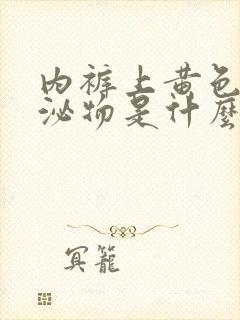 内裤上黄色
泌物是什麽
冥籠